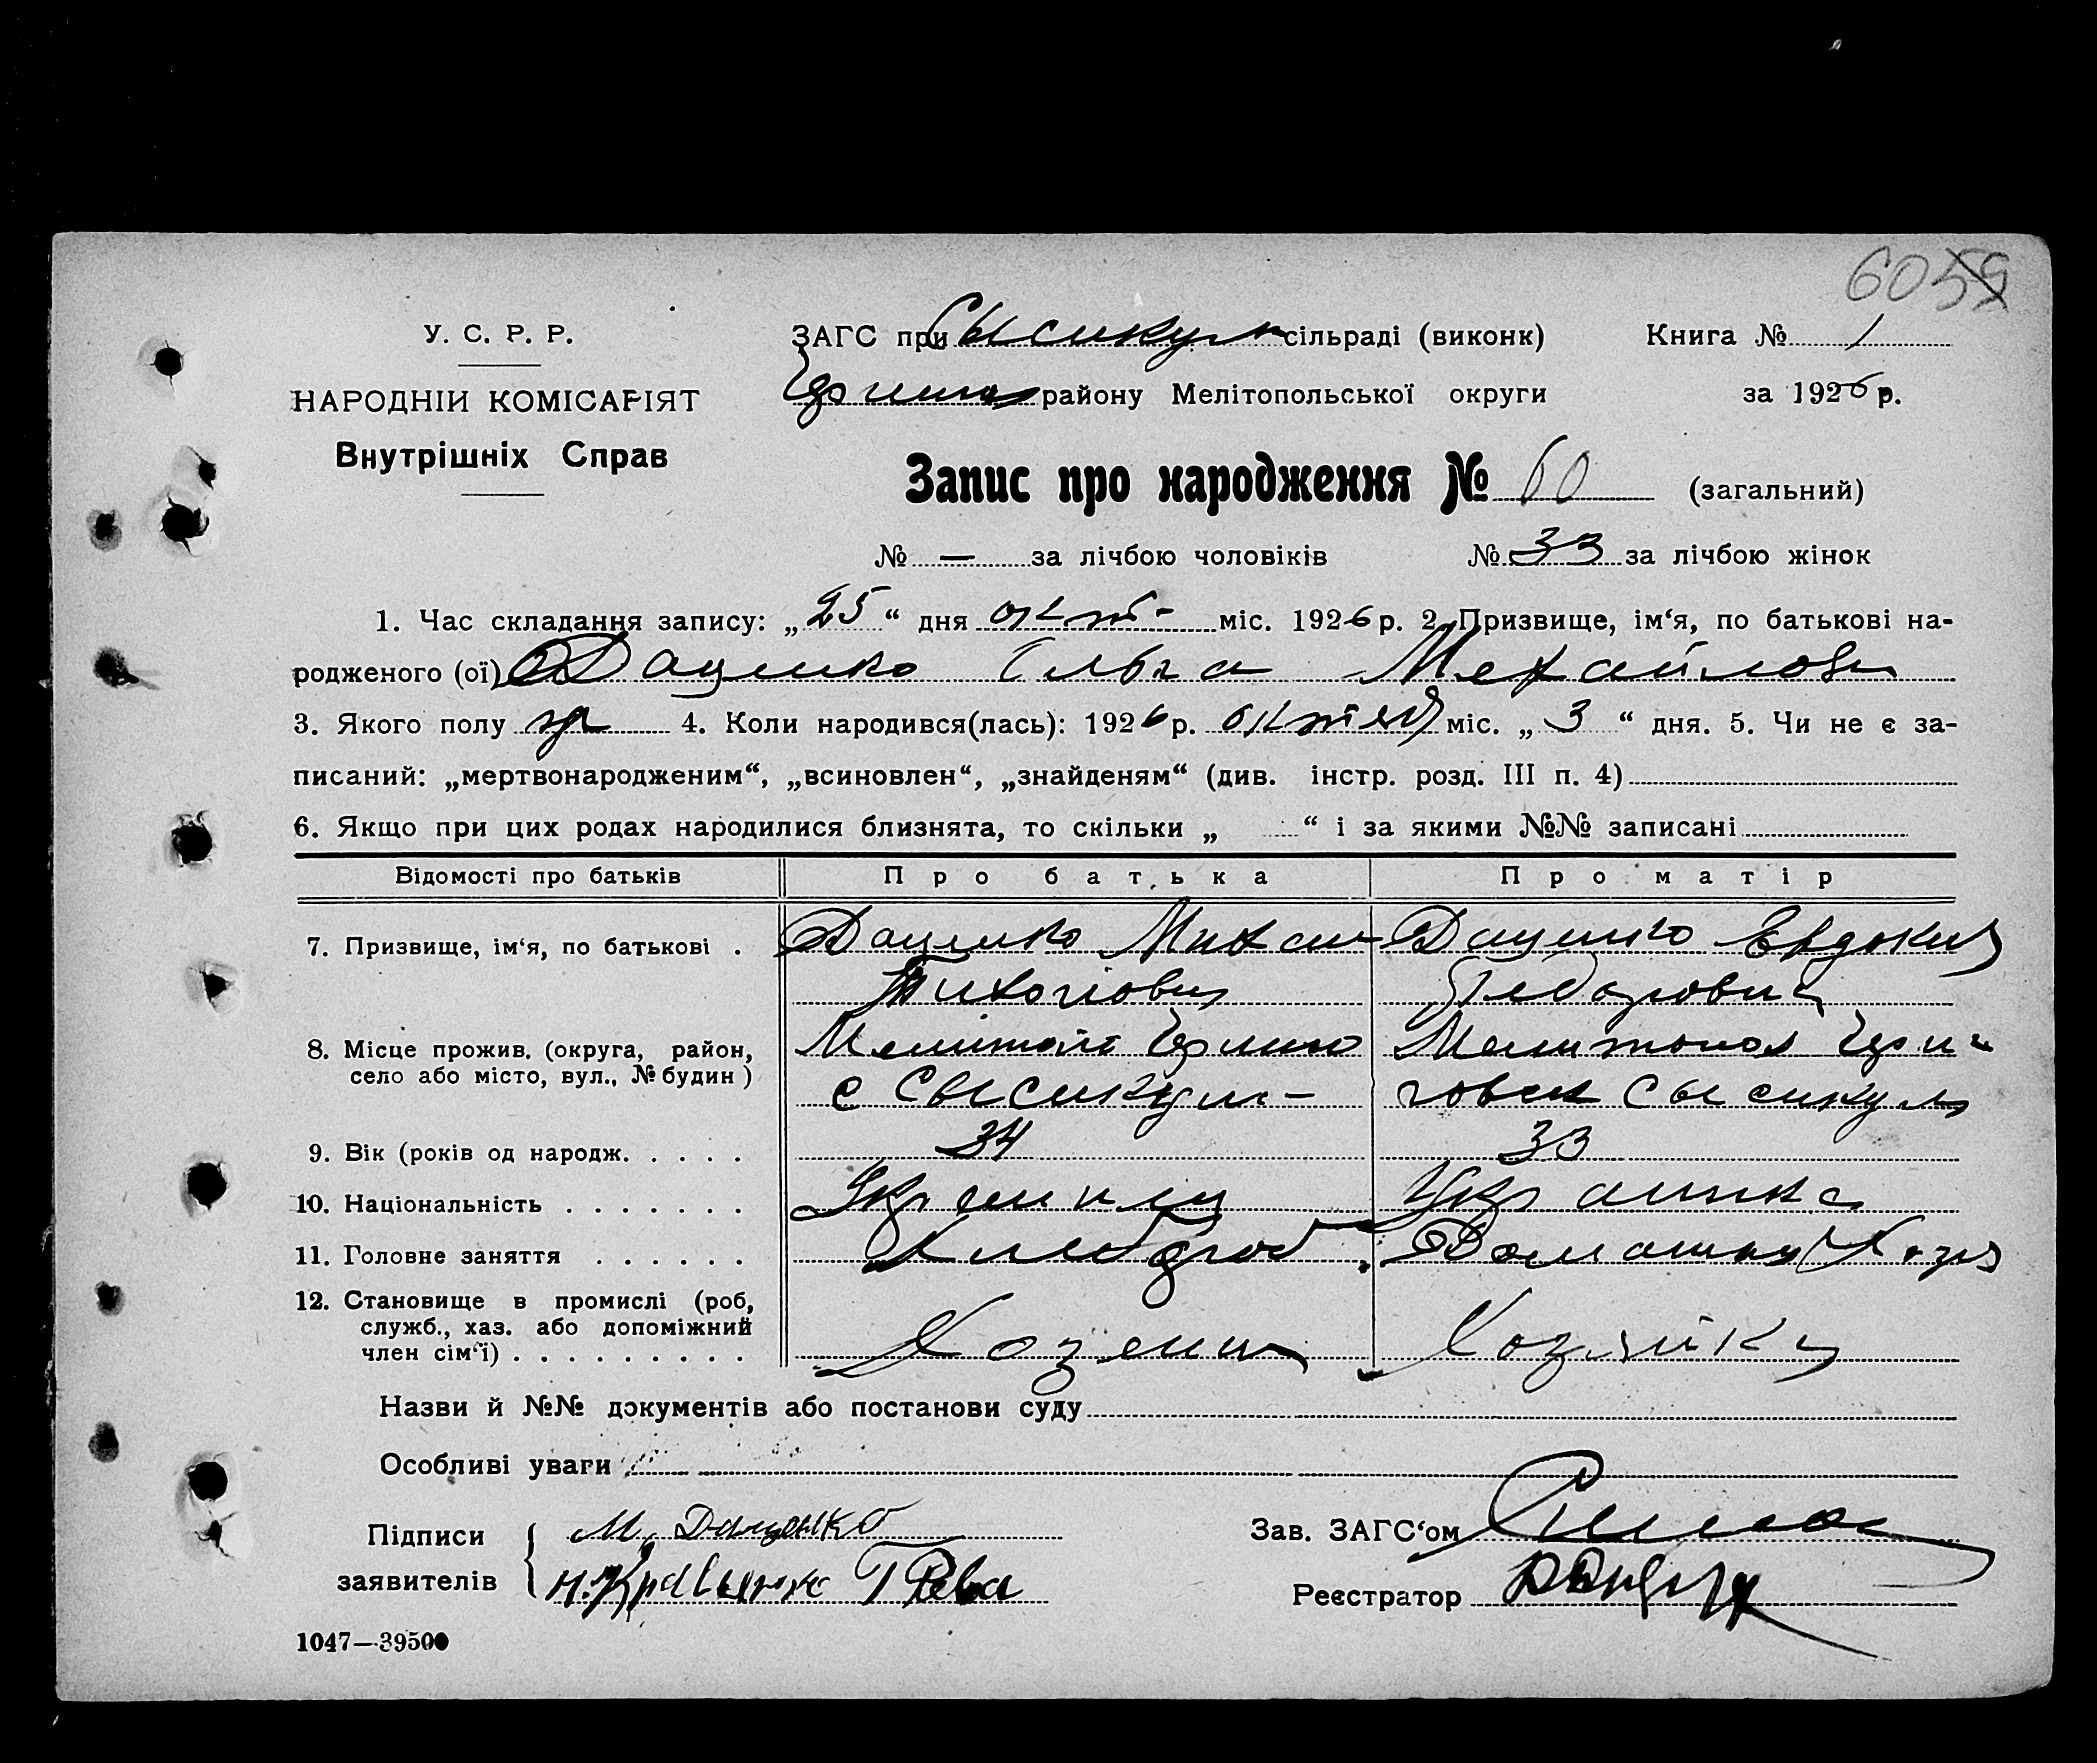 6059
У. С. Р. Р.
НАРОДНІЙ КОМІСАРІЯТ
Внутрішніх Справ
ЗАГС при Сысикул сільраді (виконк)
району Мелітопольської округи
Книга № 1
за 1926 р.
Запис про народження № 60 (загальний)
№ — за лічбою чоловіків № 33 за лічбою жінок
1. Час складання запису: „25“ дня окт- міс. 1926 р. 2. Призвище, ім‘я, по батькові на-
родженого (ої) Даценко Ольга
3. Якого полу 4. Коли народився(лась): 1926 р. октяб міс. „3“ дня. 5. Чи не є за-
писаний: „мертвонародженим“, „всиновлен“, „знайденям“ (див. інстр. розд. III п. 4)
6. Якщо при цих родах народилися близнята, то скільки „ “ і за якими №№ записані
Відомості про батьків Про батька Про матір
7. Призвище, ім‘я, по батькові . Даценко Михаи Даценко Евдокия
8. Місце прожив. (округа, район, Мелитополь
село або місто, вул., № будин) с Сысикул- Сысикул
9. Вік (років од народж. . . . . 34 33
10. Національність . . . . . . . Украинец Украинка
11. Головне заняття . . . . . . Хлебороб Домашн Хозя
12. Становище в промислі (роб,
служб., хаз. або допоміжний
член сім‘ї) . . . . . . . . . Хозяин Хозяйка
Назви й №№ документів або постанови суду
Особливі уваги
Підписи М. Даценко Зав. ЗАГС‘ом
заявителів Рева Реєстратор
1047—39500